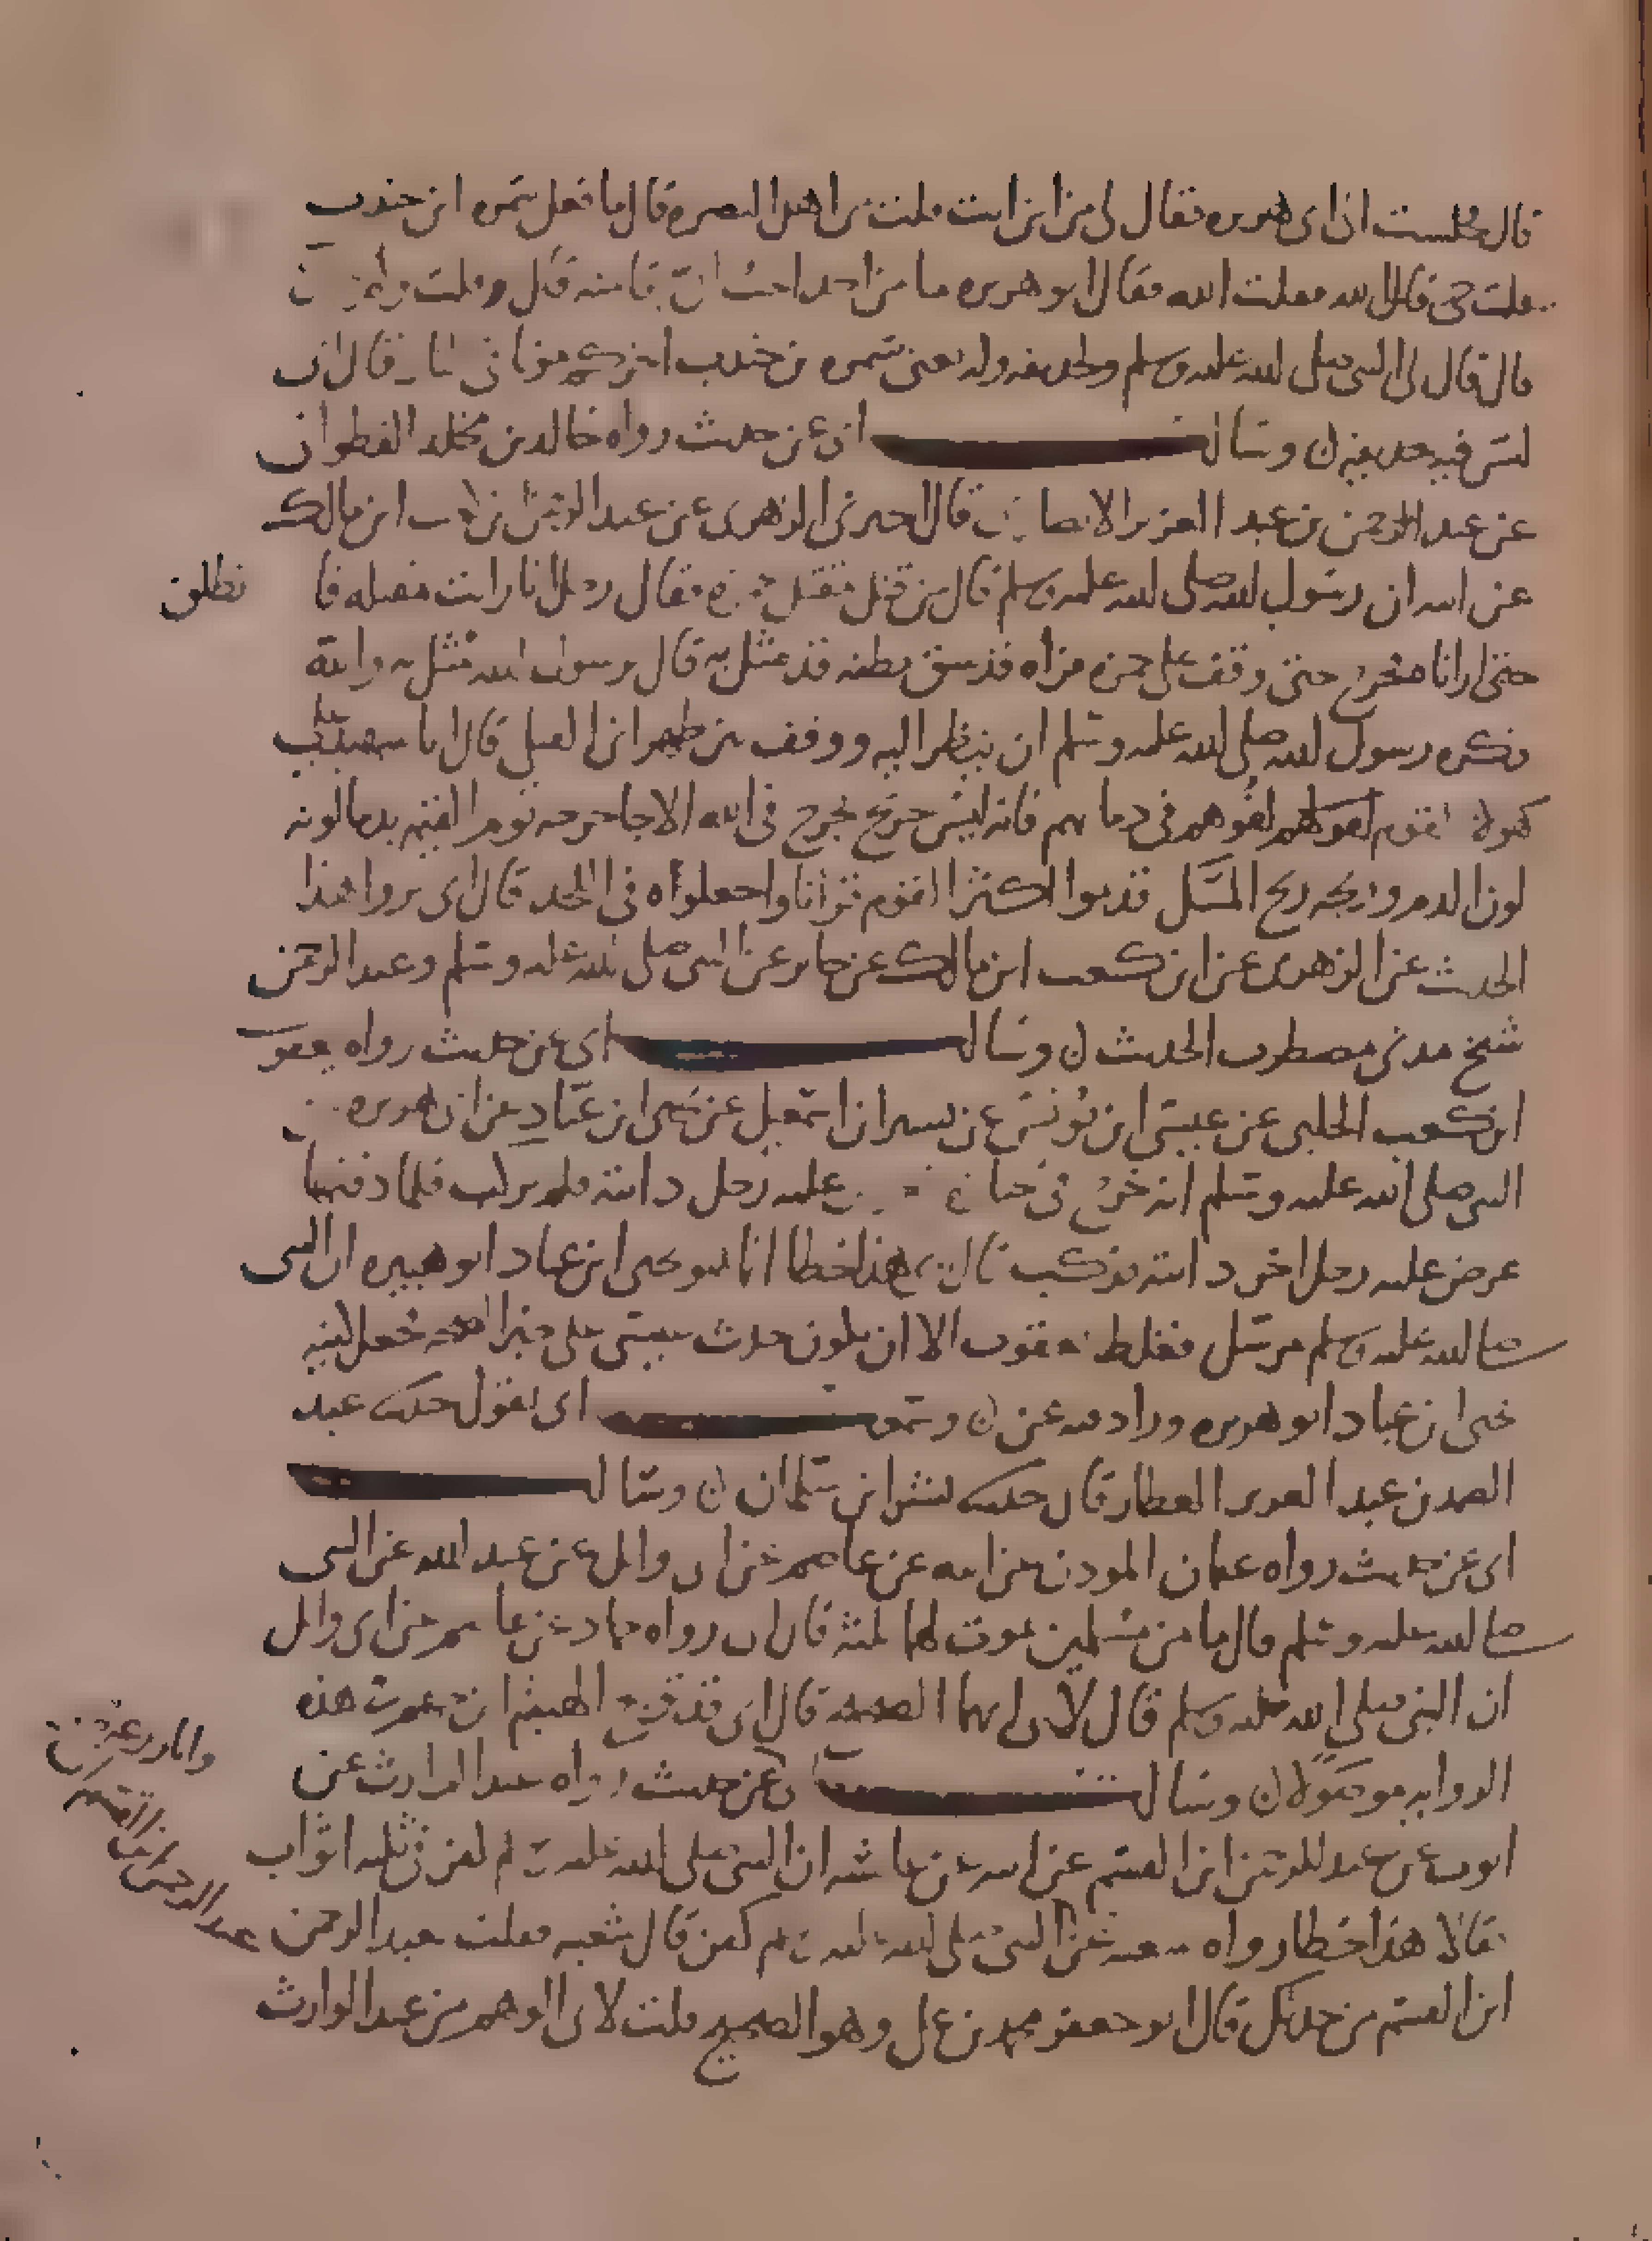 قال فجلست الى ابى هريره فقال لى من اين انت قلت من اهل البصره قال ما فعل سمره ابن جندب
قلت حى قال الله فعلت الله فقال ابو هريره ما من احد احب الى بقا منه قال وقلت ولم
قال قال لى النبى صلى الله عليه وسلم ولحذيفه وله يعنى سمره بن جندب اخركم موتا فى النار قال ابى
ليس فيه حذيفه ن وسالت ابى عن حديث رواه خالد بن مخلد القطوانى
عن عبد الرحمن بن عبد العزيز الانصارى قال اخبرنى الزهرى عن عبد الرحمن بن كعب ابن مالك
عن ابيه ان رسول الله صلى الله عليه وسلم قال من قتل مقتل حمزه فقال رجل انا رايت مقتله فا نطلق
حتى ارانا مخرج حتى وقف على حمزه فراه قد شق بطنه قد مثل به قال يرسول الله مثل به والله
فكره رسول الله صلى الله عليه وسلم ان ينظر اليه ووقف بين ظهرانى القتلى قال انا شهيد على
هولا القوم لفوهم فى دمايهم فانه ليس جريح يجرح فى الله الا جا جرحه يوم القيمه يدما لونه
لون الدم وريحه ريح المسك قدموا اكثر القوم قرانا واجعلوه فى اللحد قال ابى يروا هذا
الحديث عن الزهرى عن ابن كعب ابن مالك عن جابر عن النبى صلى الله عليه وسلم وعبد الرحمن
شيخ مدنى مضطرب الحديث ن وسالت ابى عن حديث رواه يعقوب
ابن كعب الحلبى عن عيسى ابن يونس عن بسر ابن اسمعيل عن يحيى ابن عباد عن ابى هريره
النبى صلى الله عليه وسلم انه خرج فى جنازه عليه رجل دابته فلم يركب فلما دفنها
عرض عليه رجل اخر دابته فركب قال ابى هذا خطا انما هو يحيى ابن عباد ابو هبيره ان النبى
صلى الله عليه وسلم مرسل فغلط يعقوب الا ان يكون حدث عيسى على حيرا فجعل كنيه
يحيى ابن عباد ابو هريره وزاد فيه عن ن وسمعت ابى يقول حدثنا عبد
الصمد بن عبد العزيز العطار قال حدثنا بشر ابن سلمان ن وسالت
ابى عن حديث رواه عثمان الموذن عن ابيه عن عاصم عن ابى وايل عن عبد الله عن النبى
صلى الله عليه وسلم قال ما من مسلمين يموت لهما ثلثه قال ابى رواه حماد عن عاصم عن ابى وايل
ان النبى صلى الله عليه وسلم قال لابى ايهما الصحيح قال ابى قد تابع الهيثم ابن جهم هذه
الروايه موصولا ن وسالت ابى عن حديث رواه عبد الوارث عن
ايوب عن عبد الرحمن ابن القسم عن ابيه عن عايشه ان النبى صلى الله عليه وسلم كفن فى ثلثه اثواب
فقالا هذا خطا رواه شعبه عن النبى صلى الله عليه وسلم كفن قال شعبه فقلت لعبد الرحمن
ابن القسم من حدثك قال ابو جعفر محمد بن على وهو الصحيح قلت لابى الوهم من عبد الوارث
عبد الرحمن ابن القسم